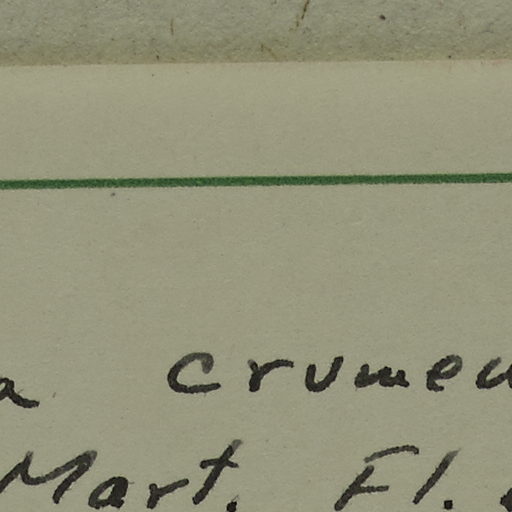 a crumen
Mart. Fl.